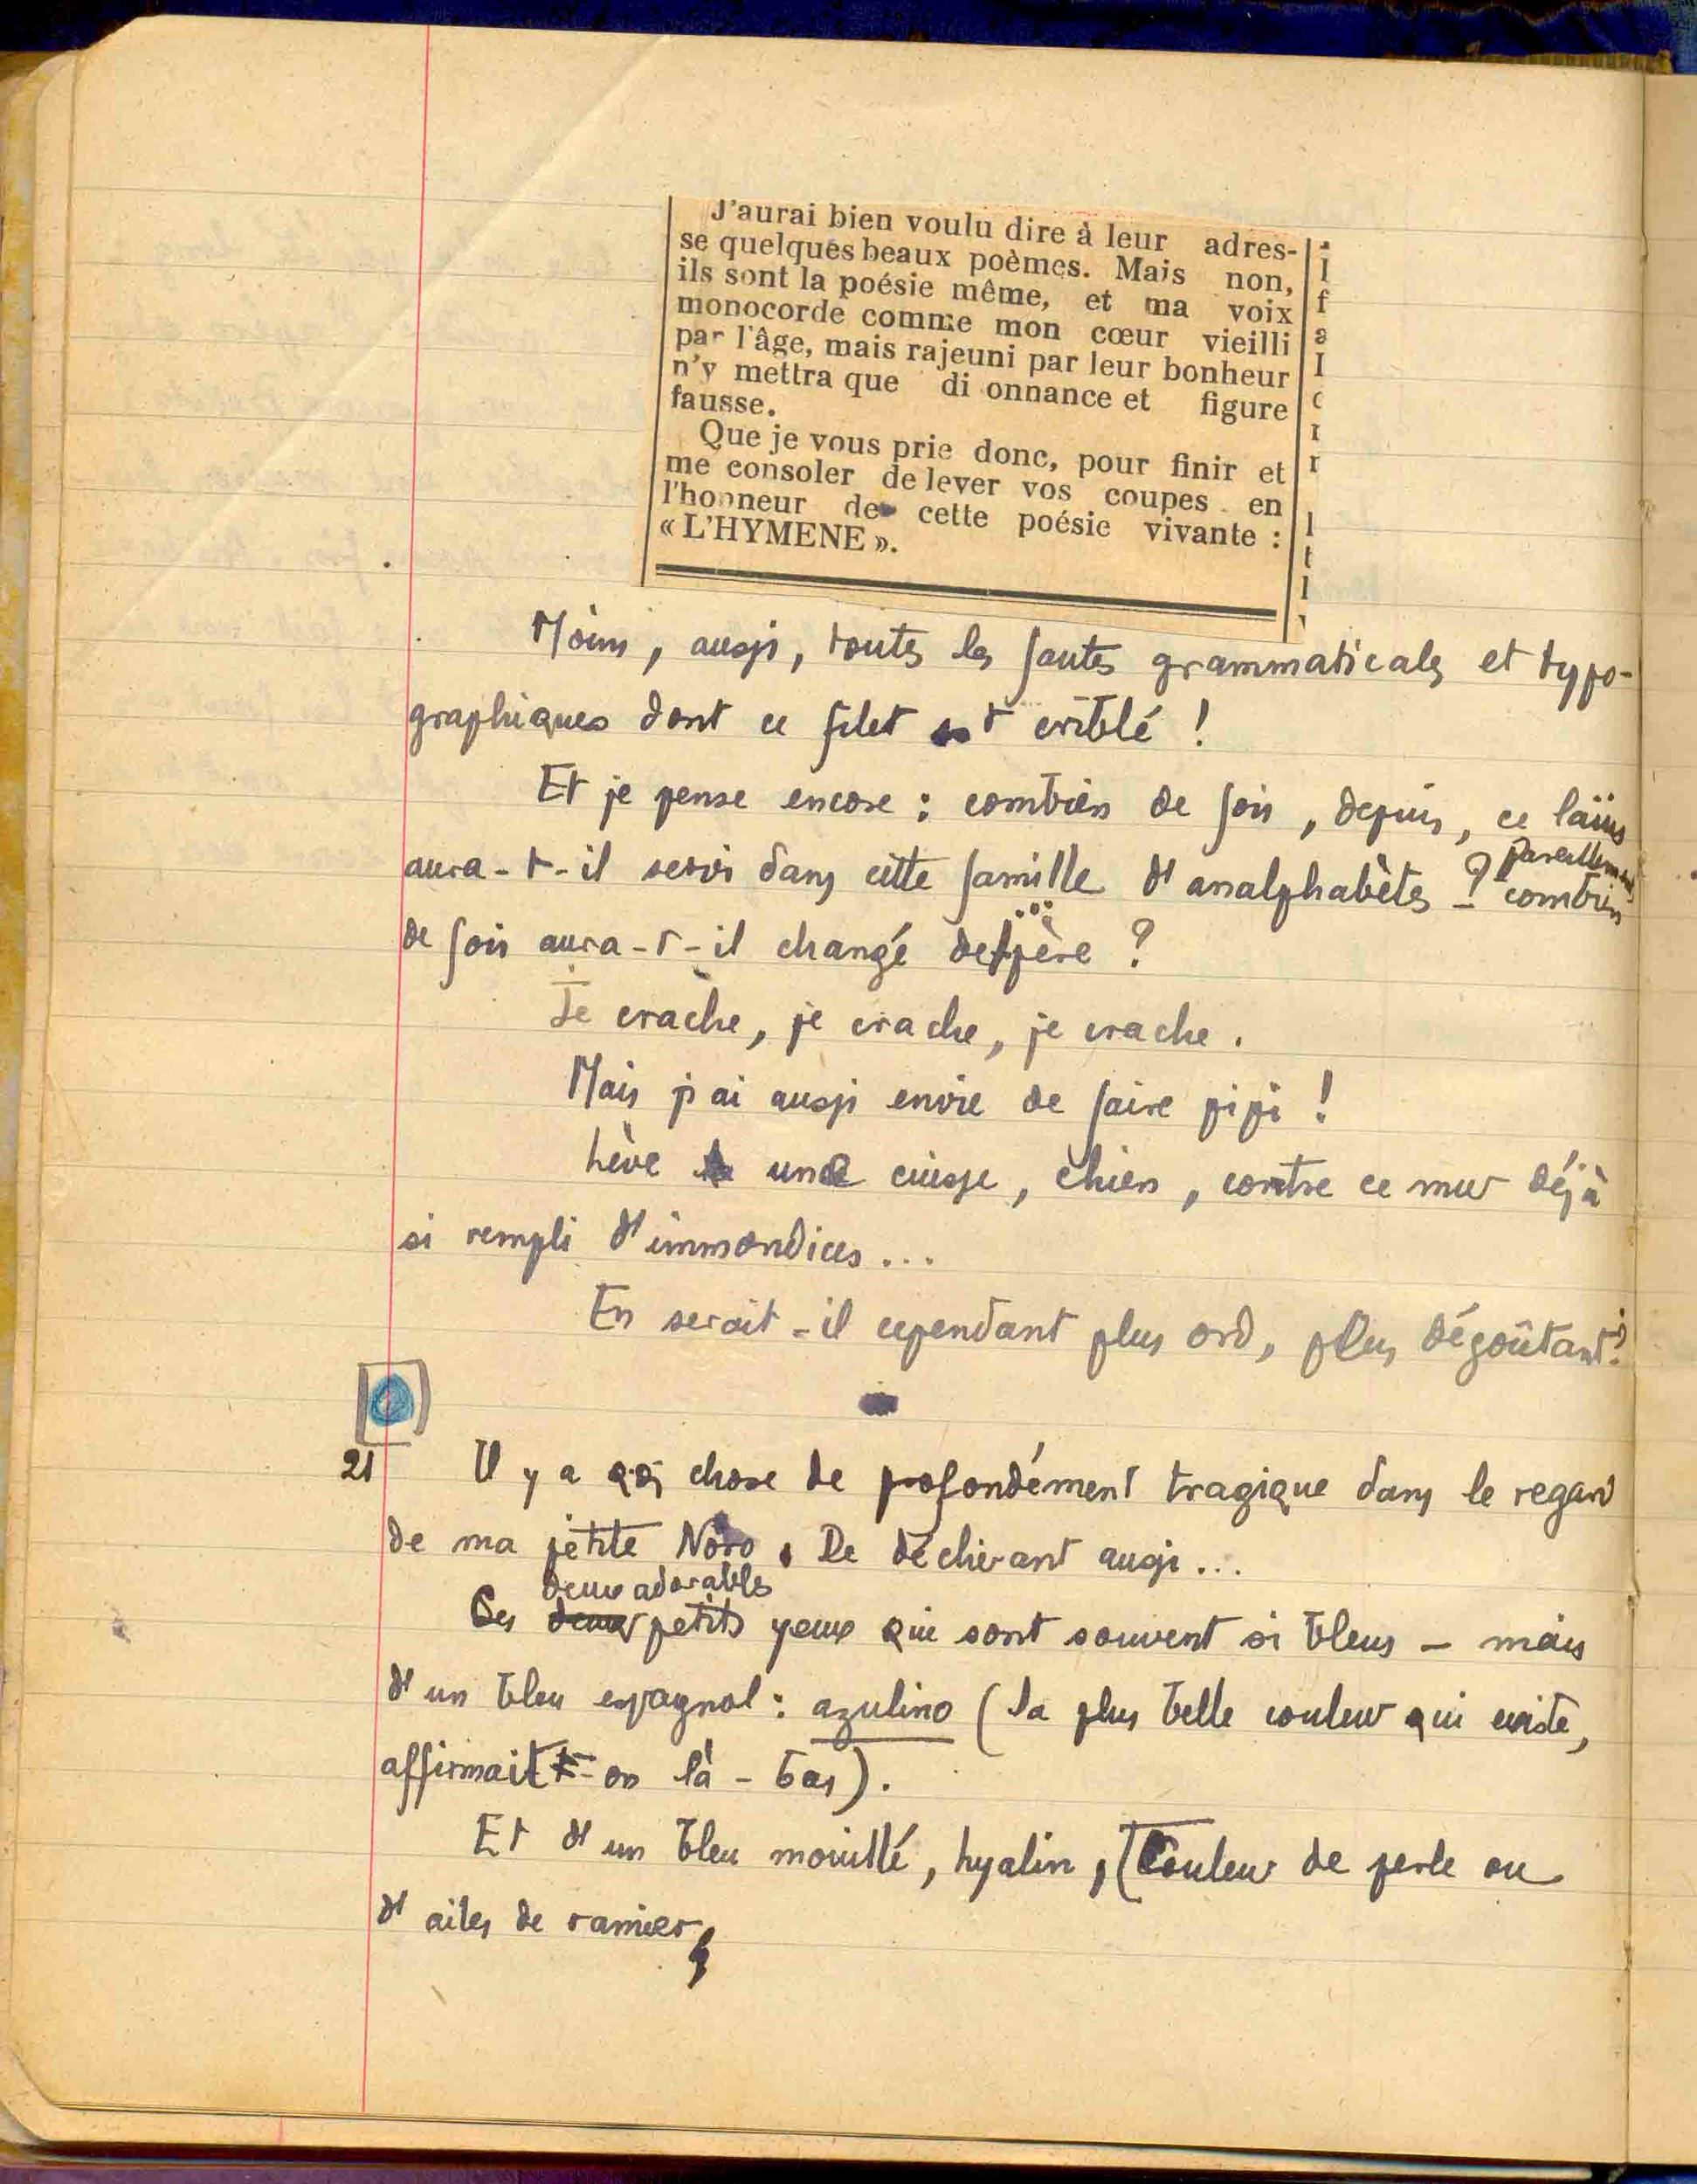 J'aurai bien voulu dire à leur adres-
se quelques beaux poèmes. Mais non,
ils sont la poésie même, et ma voix
monocorde comme mon cœur vieilli
par l'âge, mais rajeuni par leur bonheur
n'y mettra que di onnance et figure
fausse.
Que je vous prie donc, pour finir et
me consoler de lever vos coupes en
l'honneur de cette poésie vivante :
« L'HYMENE ».
Moins, aussi, toutes les fautes grammaticales et typo-
graphiques dont ce filet est criblé !
Et je pense encore : combien de fois, depuis, ce laïus
aura-t-il servi dans cette famille d'analphabètes ? pareillement combien
de fois aura-t-il changé de... père ?
Je crache, je crache, je crache.
Mais j'ai aussi envie de faire pipi !
Lève une cuisse, chien, contre ce mur déjà
si rempli d'immondices...
En serait-il cependant plus ord, plus dégoûtant ?
21 Il y a qq chose de profondément tragique dans le regard
de ma petite Noro. De déchirant aussi...
deux adorables
Ses deux petits yeux qui sont souvent si bleus – mais
d'un bleu espagnol : azulino (la plus belle couleur qui existe,
affirmait-on là-bas).
Et d'un bleu mouillé, hyalin, (couleur de perle ou
d'ailes de ramier